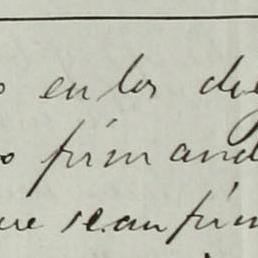 en los
firmand
sean firm